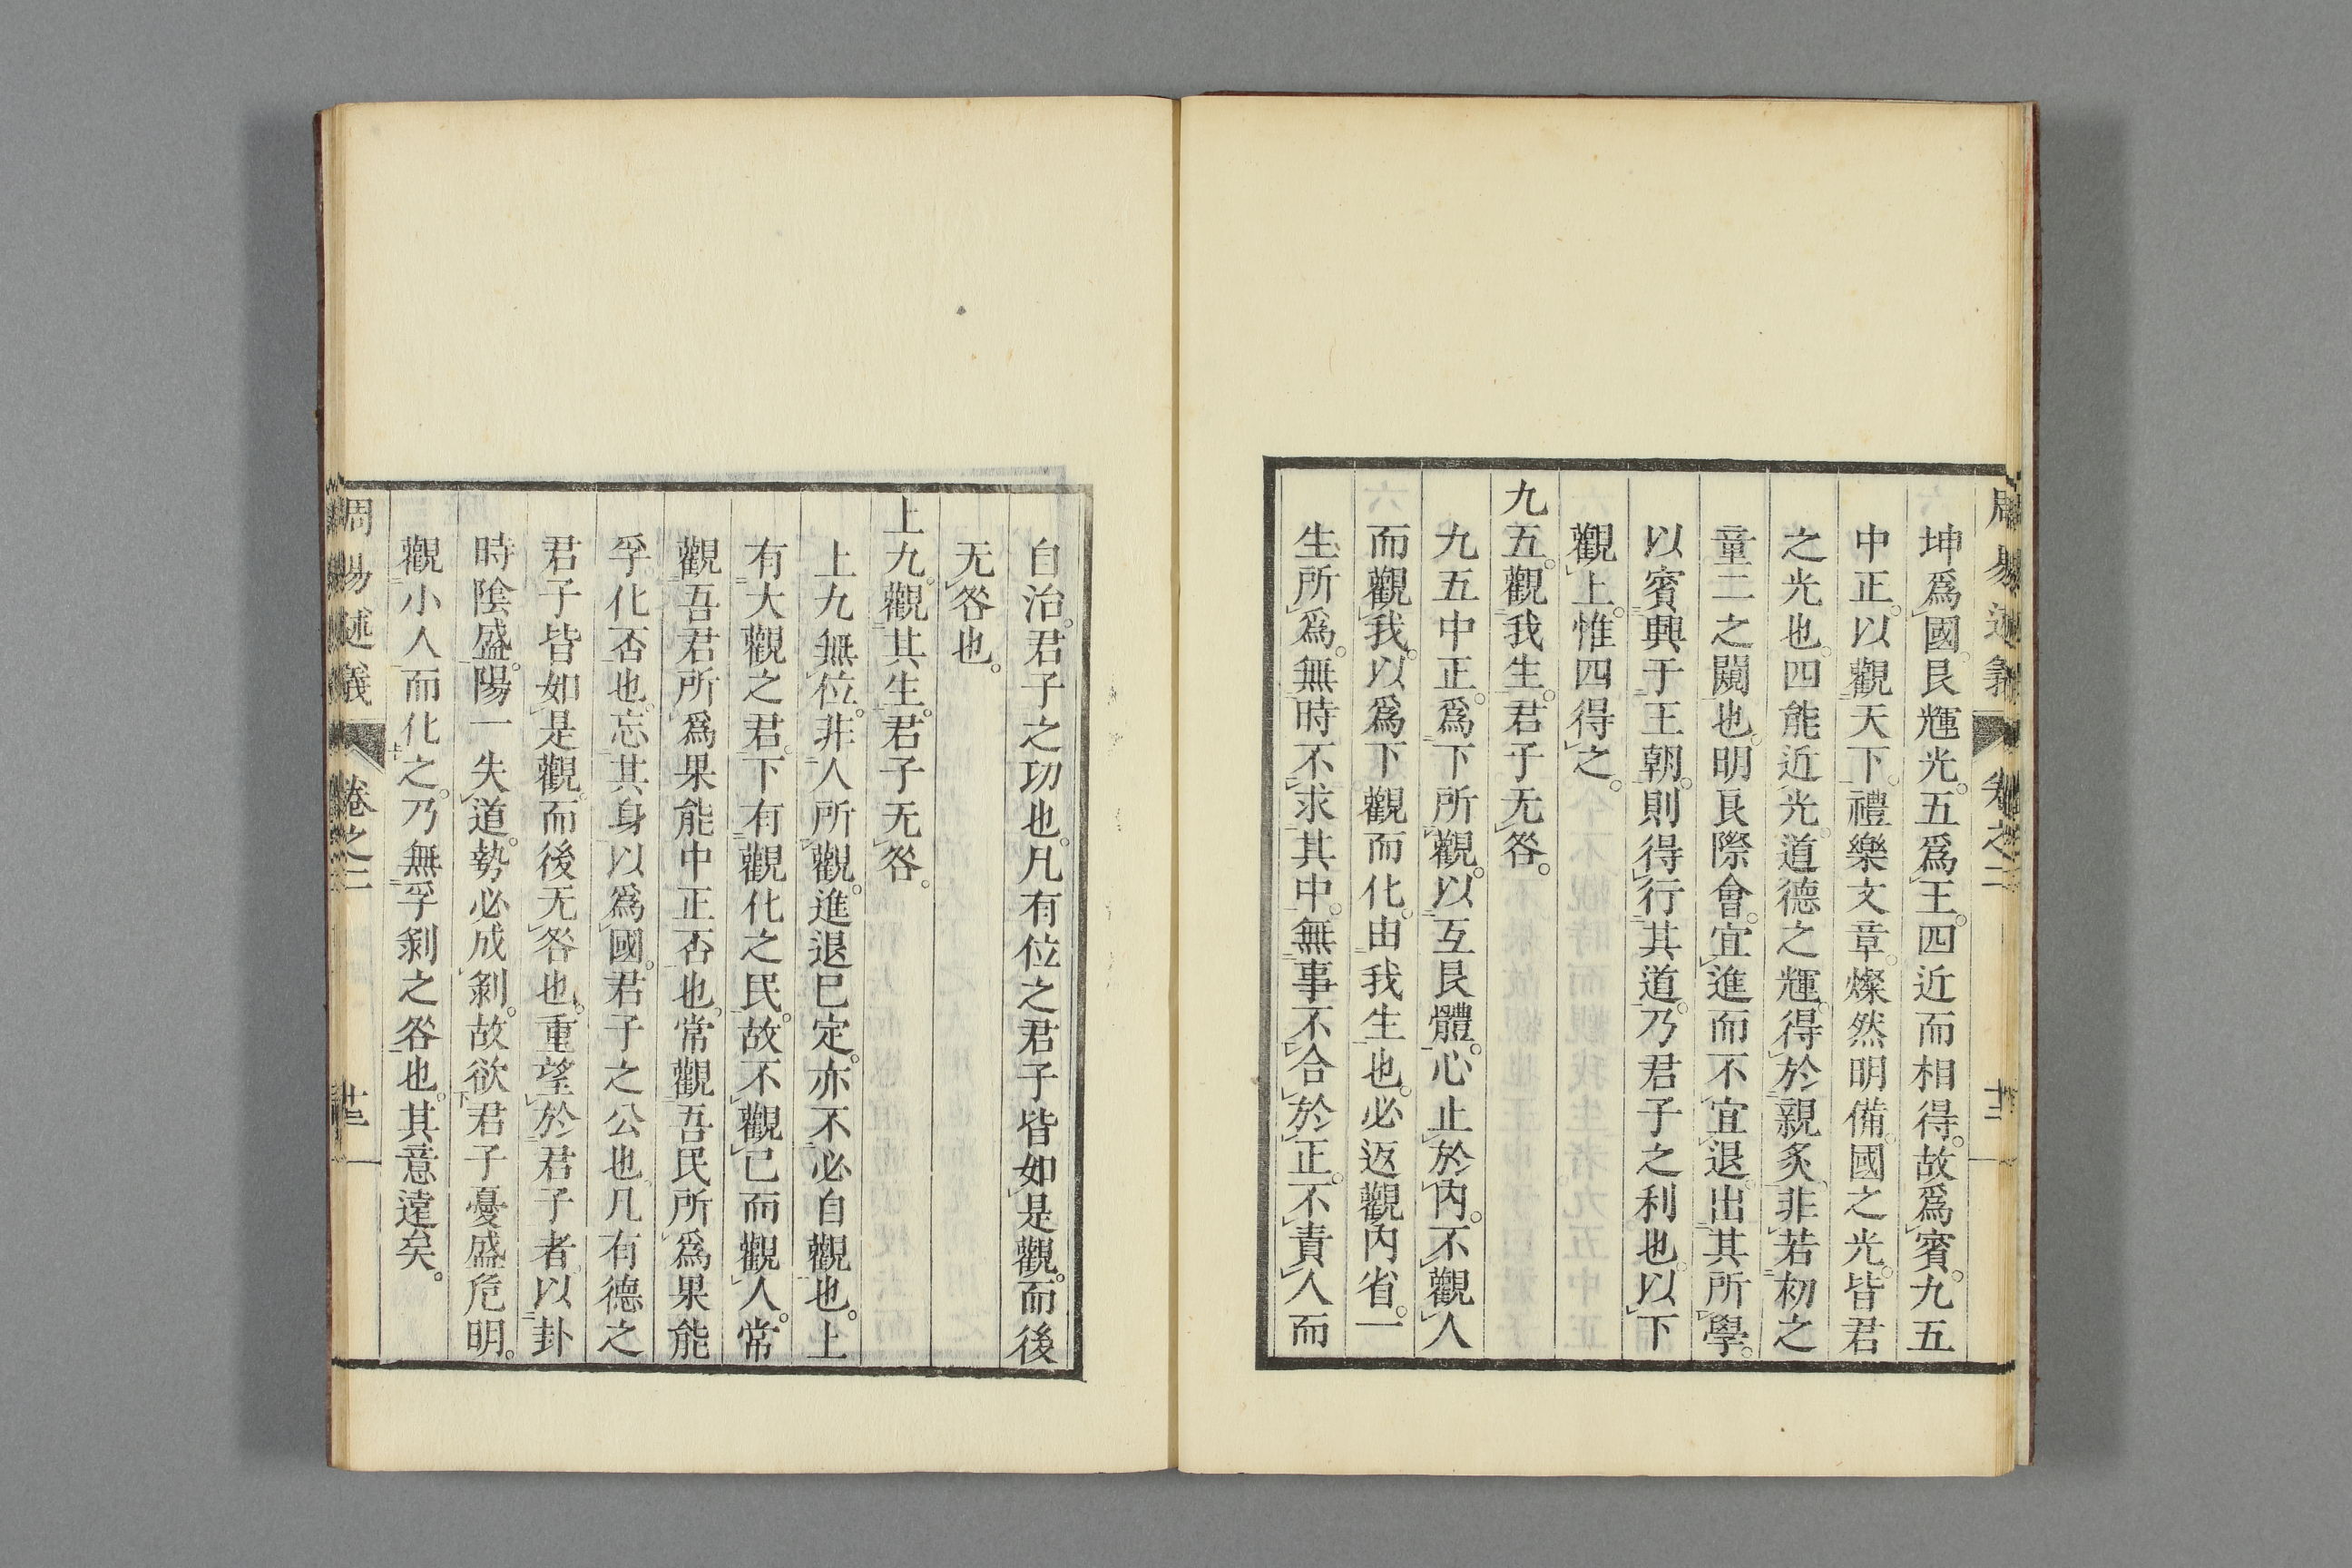 坤爲國。艮輝光。五爲王。四近而相得。故爲賓。九五
中正。以觀天下。禮樂文章。燦然明備。國之光。皆君
之光也。四能近光。道德之輝。得於親炙。非若初之
童二之闚也。明艮際會。宜進而不宜退。出其所學。
以賓興于王朝。則得行其道。乃君子之利也。以下
觀上。惟四得之。
九五。觀我生。君子无咎。
九五中正。爲下所觀。以互艮體。心止於內。不觀人
而觀我。以爲下觀而化。由我生也。必返觀內省。一
生所爲。無時不求其中。無事不合於正。不責人而
周易述義 卷之二 十二
自治。君子之功也。凡有位之君子皆如是觀。而後
无咎也。
上九。觀其生。君子无咎。
上九無位。非人所觀。進退已定。亦不必自觀也。上
有大觀之君。下有觀化之民。故不觀己而觀人。常
觀吾君所爲果能中正否也。常觀吾民所爲果能
孚化否也。忘其身以爲國。君子之公也。凡有德之
君子皆如是觀。而後无咎也。重望於君子者。以卦
時陰盛。陽一失道。勢必成剝。故欲君子憂盛危明。
觀小人而化之。乃無孚剝之咎也。其意遠矣。
周易述義 卷之二 十三